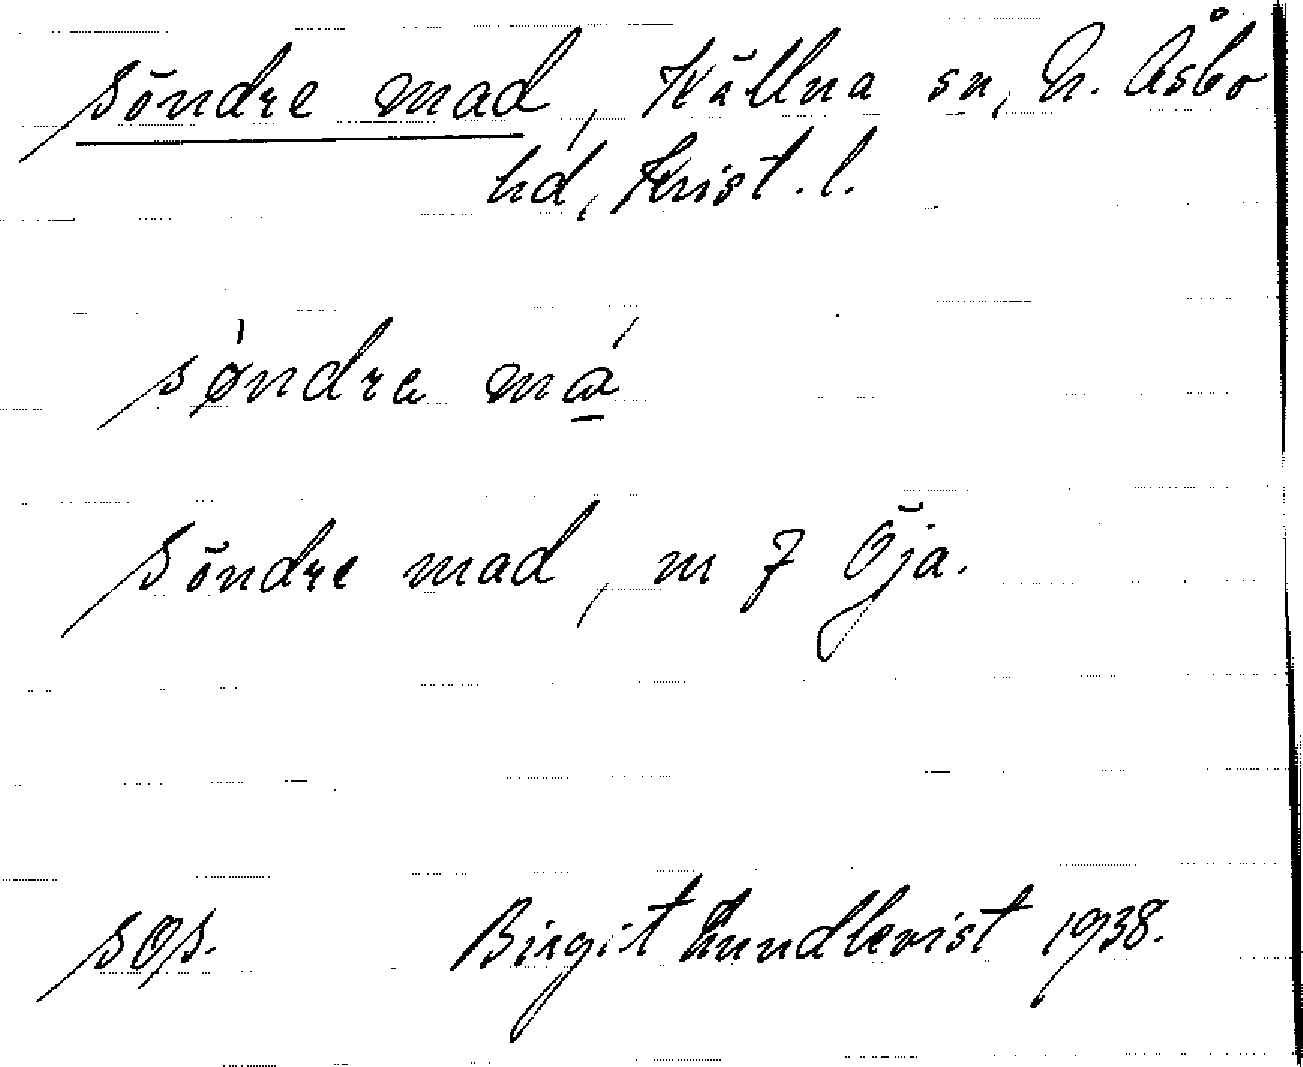 Söndre mad, Källna sn, N. Åsbo
hd, Krist. l.
søndrɐ mɑ
Söndre mad, m 7 Öja.
søs.
Birgit Lundkvist 1938.